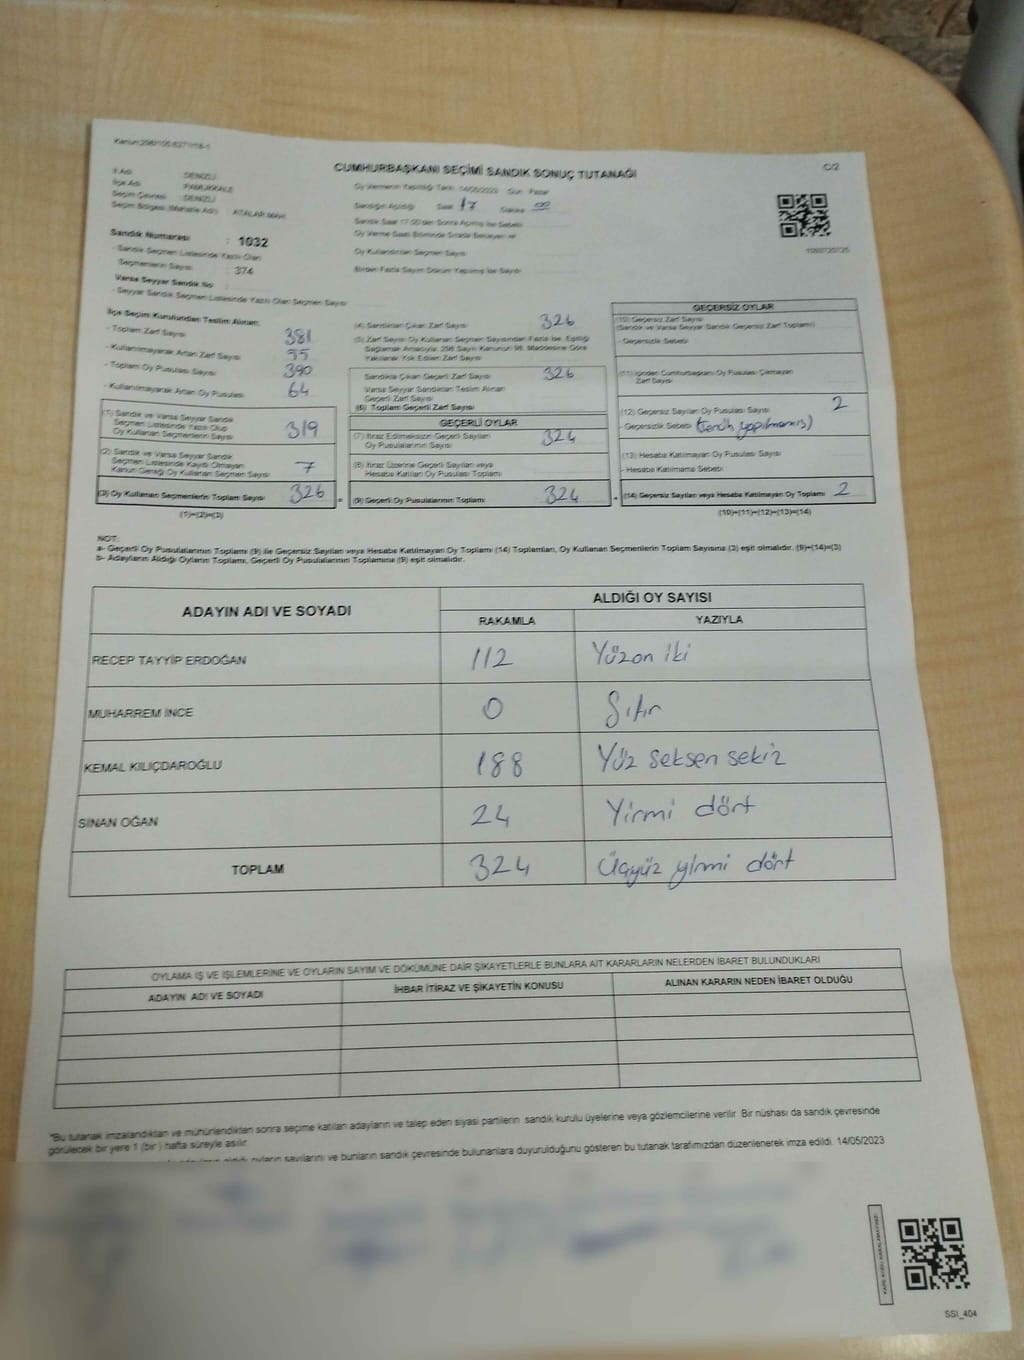 CUMHURBAŞKANI SEÇİMİ SANDIK SONUÇ TUTANAĞI
C/2
İl Adı : DENİZLİ
İlçe Adı : PAMUKKALE
Seçim Çevresi : DENİZLİ
Seçim Bölgesi (Mahalle Adı) : ATALAR MAH.
Oy Vermenin Yapıldığı Tarih: 14/05/2023 Gün: Pazar
Sandığın Açıldığı Saat 17 Dakika 00
Sandık Saat 17:00'den Sonra Açılmış İse Sebebi
Oy Verme Saati Bitiminde Sırada Bekleyen
Oy Kullandırılan Seçmen Sayısı
Birden Fazla Sayım Döküm Yapılmış İse Sayısı
Sandık Numarası : 1032
- Sandık Seçmen Listesinde Yazılı Olan
Seçmenlerin Sayısı : 374
Varsa Seyyar Sandık No :
- Seyyar Sandık Seçmen Listesinde Yazılı Olan Seçmen Sayısı
İlçe Seçim Kurulundan Teslim Alınan:
- Toplam Zarf Sayısı 381
- Kullanılmayarak Artan Zarf Sayısı 55
- Toplam Oy Pusulası Sayısı 390
- Kullanılmayarak Artan Oy Pusulası 64
(1) Sandık ve Varsa Seyyar Sandık
Seçmen Listesinde Yazılı Olup
Oy Kullanan Seçmenlerin Sayısı 319
(2) Sandık ve Varsa Seyyar Sandık
Seçmen Listesinde Kaydı Olmayan
Kanun Gereği Oy Kullanan Seçmen Sayısı 7
(3) Oy Kullanan Seçmenlerin Toplam Sayısı 326
(1)+(2)=(3)
(4) Sandıktan Çıkan Zarf Sayısı 326
(5) Zarf Sayısı Oy Kullanan Seçmen Sayısından Fazla İse, Eşitliği
Sağlamak Amacıyla, 298 Sayılı Kanunun 98. Maddesine Göre
Yakılarak Yok Edilen Zarf Sayısı
Sandıkta Çıkan Geçerli Zarf Sayısı 326
Varsa Seyyar Sandıktan Teslim Alınan
Geçerli Zarf Sayısı
(6) Toplam Geçerli Zarf Sayısı
GEÇERLİ OYLAR
(7) İtiraz Edilmeksizin Geçerli Sayılan
Oy Pusulalarının Sayısı 324
(8) İtiraz Üzerine Geçerli Sayılan veya
Hesaba Katılan Oy Pusulası Toplamı
(9) Geçerli Oy Pusulalarının Toplamı 324
GEÇERSİZ OYLAR
(10) Geçersiz Zarf Sayısı
(Sandık ve Varsa Seyyar Sandık Geçersiz Zarf Toplamı)
- Geçersizlik Sebebi
(11) İçinden Cumhurbaşkanı Oy Pusulası Çıkmayan
Zarf Sayısı
(12) Geçersiz Sayılan Oy Pusulası Sayısı 2
- Geçersizlik Sebebi (tercih yapılmamış)
(13) Hesaba Katılmayan Oy Pusulası Sayısı
- Hesaba Katılmama Sebebi
(14) Geçersiz Sayılan veya Hesaba Katılmayan Oy Toplamı 2
(10)+(11)+(12)+(13)=(14)
NOT:
a- Geçerli Oy Pusulalarının Toplamı (9) ile Geçersiz Sayılan veya Hesaba Katılmayan Oy Toplamı (14) Toplamları, Oy Kullanan Seçmenlerin Toplam Sayısına (3) eşit olmalıdır. (9)+(14)=(3)
b- Adayların Aldığı Oyların Toplamı, Geçerli Oy Pusulalarının Toplamına (9) eşit olmalıdır.
ADAYIN ADI VE SOYADI ALDIĞI OY SAYISI
RAKAMLA YAZIYLA
RECEP TAYYİP ERDOĞAN 112 Yüzon iki
MUHARREM İNCE 0 Sıfır
KEMAL KILIÇDAROĞLU 188 Yüz seksen sekiz
SİNAN OĞAN 24 Yirmi dört
TOPLAM 324 Üçyüz yirmi dört
OYLAMA İŞ VE İŞLEMLERİNE VE OYLARIN SAYIM VE DÖKÜMÜNE DAİR ŞİKAYETLERLE BUNLARA AİT KARARLARIN NELERDEN İBARET BULUNDUKLARI
ADAYIN ADI VE SOYADI İHBAR İTİRAZ VE ŞİKAYETİN KONUSU ALINAN KARARIN NEDEN İBARET OLDUĞU
"Bu tutanak imzalandıktan ve mühürlendikten sonra seçime katılan adayların ve talep eden siyasi partilerin sandık kurulu üyelerine veya gözlemcilerine verilir. Bir nüshası da sandık çevresinde
görülecek bir yere 1 (bir) hafta süreyle asılır.
aldığı oyların sayılarını ve bunların sandık çevresinde bulunanlara duyurulduğunu gösteren bu tutanak tarafımızdan düzenlenerek imza edildi. 14/05/2023
SSI_404